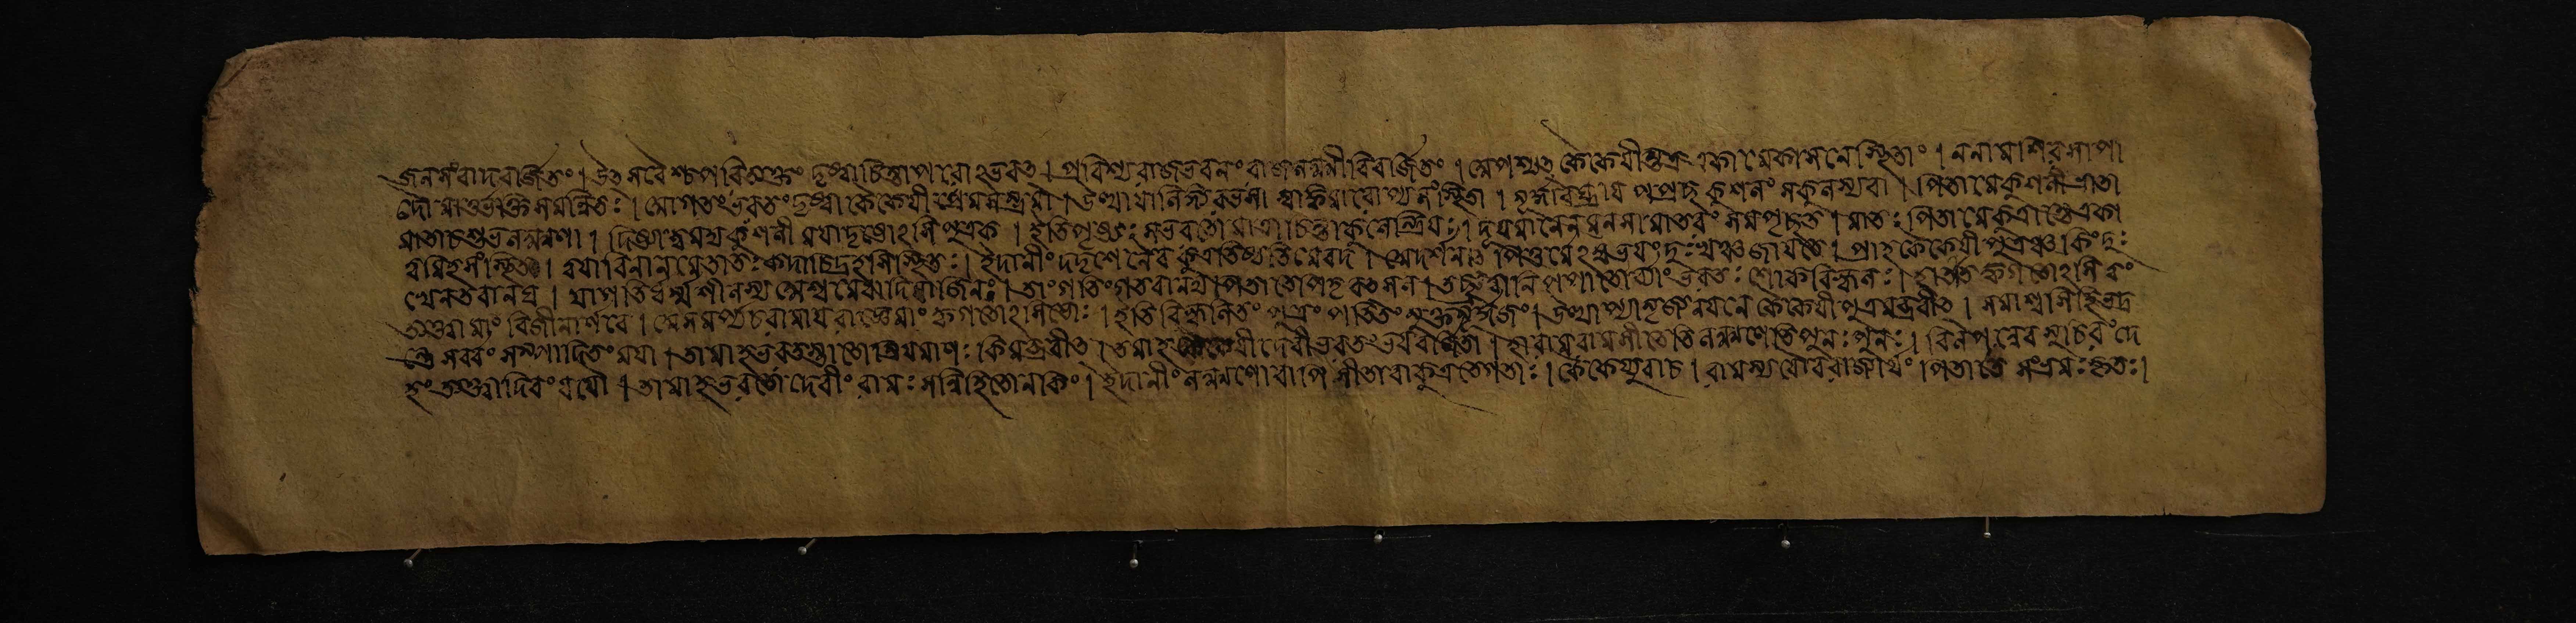 জনসংবাদবর্জিতং। উৎসবৈশ্চপরিত্যক্তং দৃষ্ট্বাচিন্তাপরোঽভবৎ। প্রবিশ্যরাজভবনং রাজলক্ষ্মীবিবর্জিতং। সোপশ্যৎ কৈকেয়ীন্তত্র একামেকাসনেস্থিতাং। ননামশিরসাপা
দৌ মাতুর্ভক্তিসমন্বিতঃ। আগতংভরতংদৃষ্ট্বা কৈকেয়ী প্রেমসম্ভ্রমা। উত্থায়ালিঙ্গ্যরভসা স্বাঙ্কমারোপ্যসংস্থিতা। মূর্দ্ধ্নিবঘ্রায় পপ্রচ্ছ কুশলং সকুলস্যবা। পিতামেকুশলীভ্রাতা
মাতাচশুভলক্ষণা। দিষ্ট্যাত্বমদ্যকুশলী ময়াদৃষ্টোঽসি পুত্রক। ইতিপৃষ্টঃ সভরতো মাত্রাচিন্তাকুলেন্দ্রিয়ঃ। দূয়মানেনমনসা মাতরং সমপৃচ্ছত। মাতঃ পিতা মেকুত্রাস্তেএকা
ত্বমিহসংস্থিতা। ত্বয়াবিনানমেতাতঃ কদাচিদ্রহসিস্থিতঃ। ইদানীং দদৃশেনৈব কুত্রতিষ্ঠতিমেবদ। অদর্শনাত্ পিতুর্মেঽদ্যভয়ংদুঃখঞ্চজায়তে। প্রাহকৈকেয়ীপুত্রঞ্চ কিংদুঃ
খেনতবানঘ। যাগতির্ধর্ম্মশীলস্য অশ্বমেধাদিয়াজিনঃ। তাংগতিংগতবানদ্য পিতাতেপিতৃবৎসল। তচ্ছ্রুত্বানিপপাতোর্ব্ব্যাংভরতঃ শোকবিহ্বলঃ। হাতাত ক্বগতোঽসিত্বং
ত্যক্ত্বামাং বৃজিনার্ণবে। অসমর্প্যচরামায় রাজ্ঞেমাং ক্বগতোঽসিভোঃ। ইতিবিহ্বলিতং পুত্রং পতিতংমুক্তমূর্দ্ধজং। উত্থাপ্যামৃজ্যনয়নে কৈকেয়ীপুত্রমব্রবীৎ। সমাশ্বসিহিভদ্র
ন্তে সর্ব্বং সম্পাদিতংময়া। তামাহভরতস্তাতোম্রিয়মাণঃ কিমব্রবীৎ। তমাহকৈকেয়ীদেবীভরতংভয়বর্জিতা। হারামরামসীতেতিলক্ষ্মণেতিপুনঃ পুনঃ। বিলপন্নেবসুচিরং দে
হং ত্যক্ত্বাদিবংযযৌ। তামাহভরতোদেবীং রামঃ সন্নিহিতোনকিং। ইদানীং লক্ষ্মণোবাপি সীতাবাকুত্রতেগতাঃ। কৈকেয়্যুবাচ। রামস্যযৌবরাজ্যার্থং পিতাতে সংভ্রমঃ কৃতঃ।